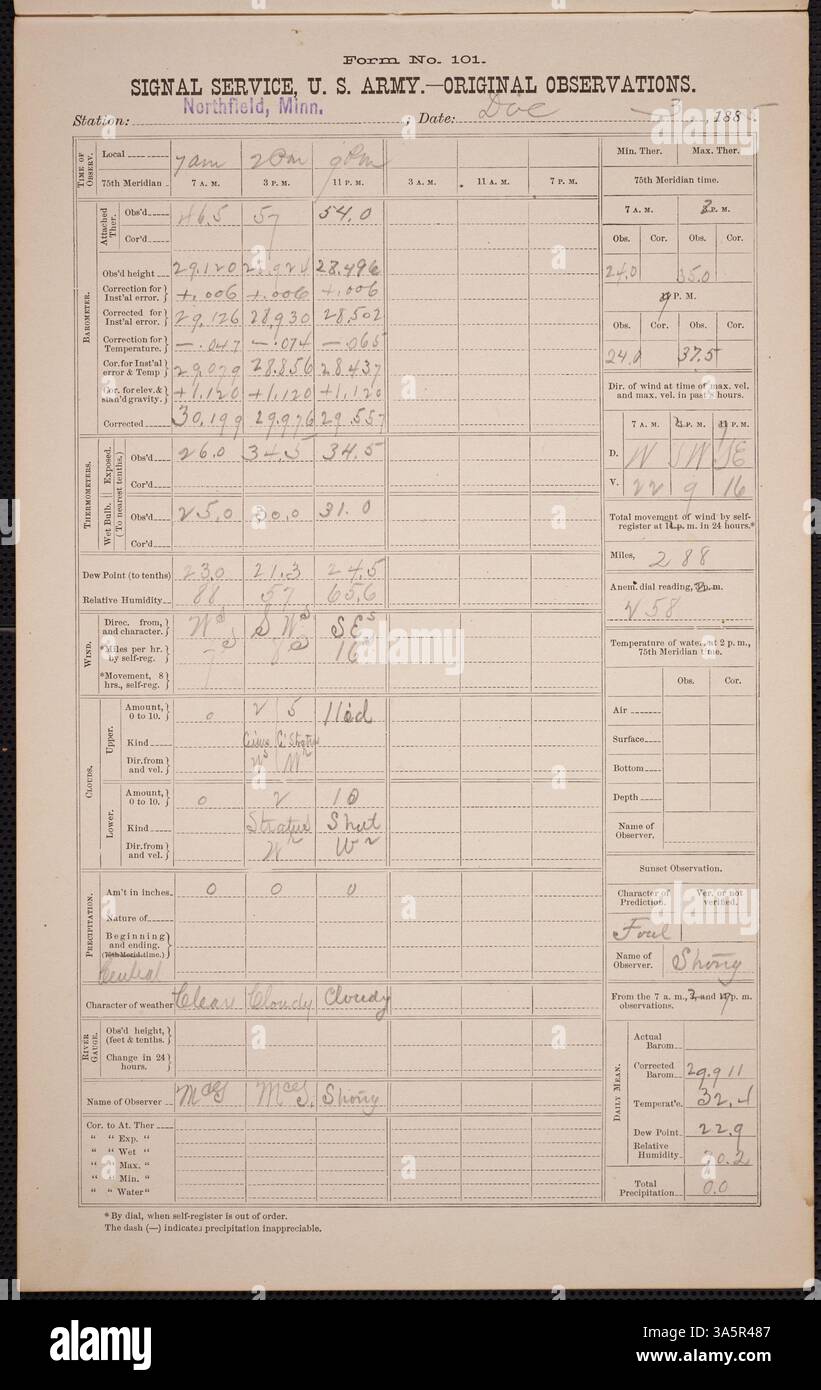 Form No. 101.
SIGNAL SERVICE, U. S. ARMY.—ORIGINAL OBSERVATIONS.
Station: Northfield, Minn. , Date: Dec 3, , 1885
TIME OF OBSERV. Local 7 am 2 Pm 9 Pm
75th Meridian 7 A. M. 3 P. M. 11 P. M. 3 A. M. 11 A. M. 7 P. M.
BAROMETER.
Attached Ther. Obs'd 46.5 57 54.0
Cor'd
Obs'd height 29.120 28.924 28.496
Correction for Inst'al error. +.006 +.006 +.006
Corrected for Inst'al error. 29.126 28.930 28.502
Correction for Temperature. —.047 —.074 —.065
Cor. for Inst'al error & Temp 29.079 28.856 28.437
Cor. for elev. & stan'd gravity. +1.120 +1.120 +1.120
Corrected 30.199 29.976 29.557
THERMOMETERS.
(To nearest tenths.)
Exposed. Obs'd 26.0 34.5 34.5
Cor'd
Wet Bulb. Obs'd 25.0 30.0 31.0
Cor'd
Dew Point (to tenths) 23.0 21.3 24.5
Relative Humidity 88 57 65.6
WIND.
Direc. from, and character. W S S W S S E S
*Miles per hr. by self-reg. 7 8 16
*Movement, 8 hrs., self-reg.
CLOUDS.
Upper. Amount, 0 to 10. 0 2 5 Hid
Kind Cirrus Ci Stratus
Dir. from and vel. W W
Lower. Amount, 0 to 10. 0 2 10
Kind Stratus
Dir. from and vel. W W
PRECIPITATION.
Am't in inches 0 0 0
Nature of
Beginning and ending.
(75th Merid. time.)
Central
Character of weather Clear Cloudy Cloudy
RIVER GAUGE.
Obs'd height, (feet & tenths.
Change in 24 hours.
Name of Observer McG McG.
Cor. to At. Ther
" " Exp. "
" " Wet "
" " Max. "
" " Min. "
" " Water"
* By dial, when self-register is out of order.
The dash (—) indicates precipitation inappreciable.
Min. Ther. Max. Ther.
75th Meridian time.
7 A. M. 3 P. M.
Obs. Cor. Obs. Cor.
24.0 35.0
P. M.
Obs. Cor. Obs. Cor.
24.0 37.5
Dir. of wind at time of max. vel. and max. vel. in past 8 hours.
7 A. M. P. M. P. M.
D. W SW SE
V. 22 9 16
Total movement of wind by self-register at 11 p. m. in 24 hours.*
Miles, 288
Anem. dial reading, p. m.
258
Temperature of water, at 2 p. m., 75th Meridian time.
Obs. Cor.
Air
Surface
Bottom
Depth
Name of Observer.
Sunset Observation.
Character of Prediction. Ver. or not verified.
Foul
Name of Observer.
From the 7 a. m., 3, and 11 p. m. observations.
DAILY MEAN.
Actual Barom
Corrected Barom 29.911
Temperat'e 32.4
Dew Point 22.9
Relative Humidity 70.2
Total Precipitation 0.0
alamy
Image ID: 3A5R487
www.alamy.com